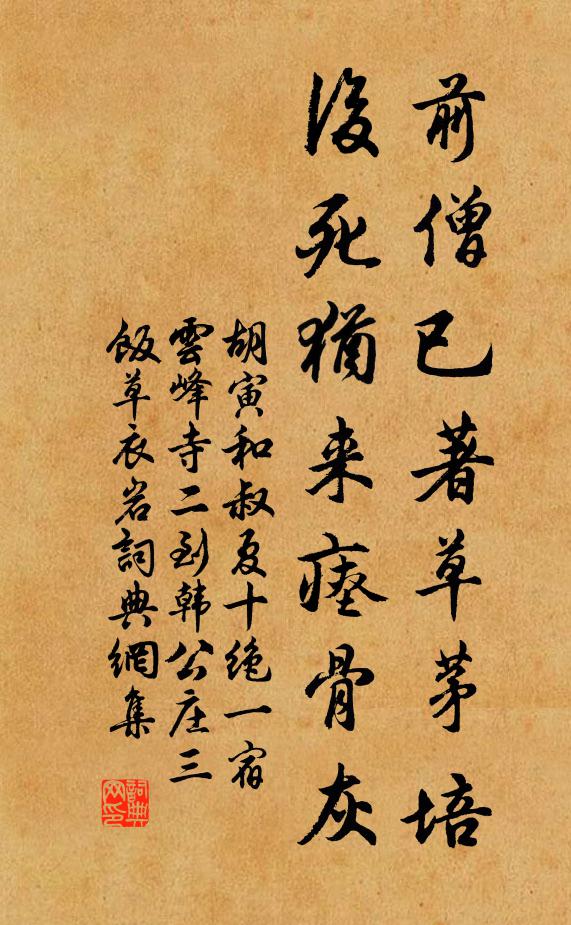 前僧已著草茅培
後死猶来瘗骨灰
胡寅和叔夏十絶一宿
雲峰寺二到韩公庄三
飯草衣岩詞典網集
詞典网印